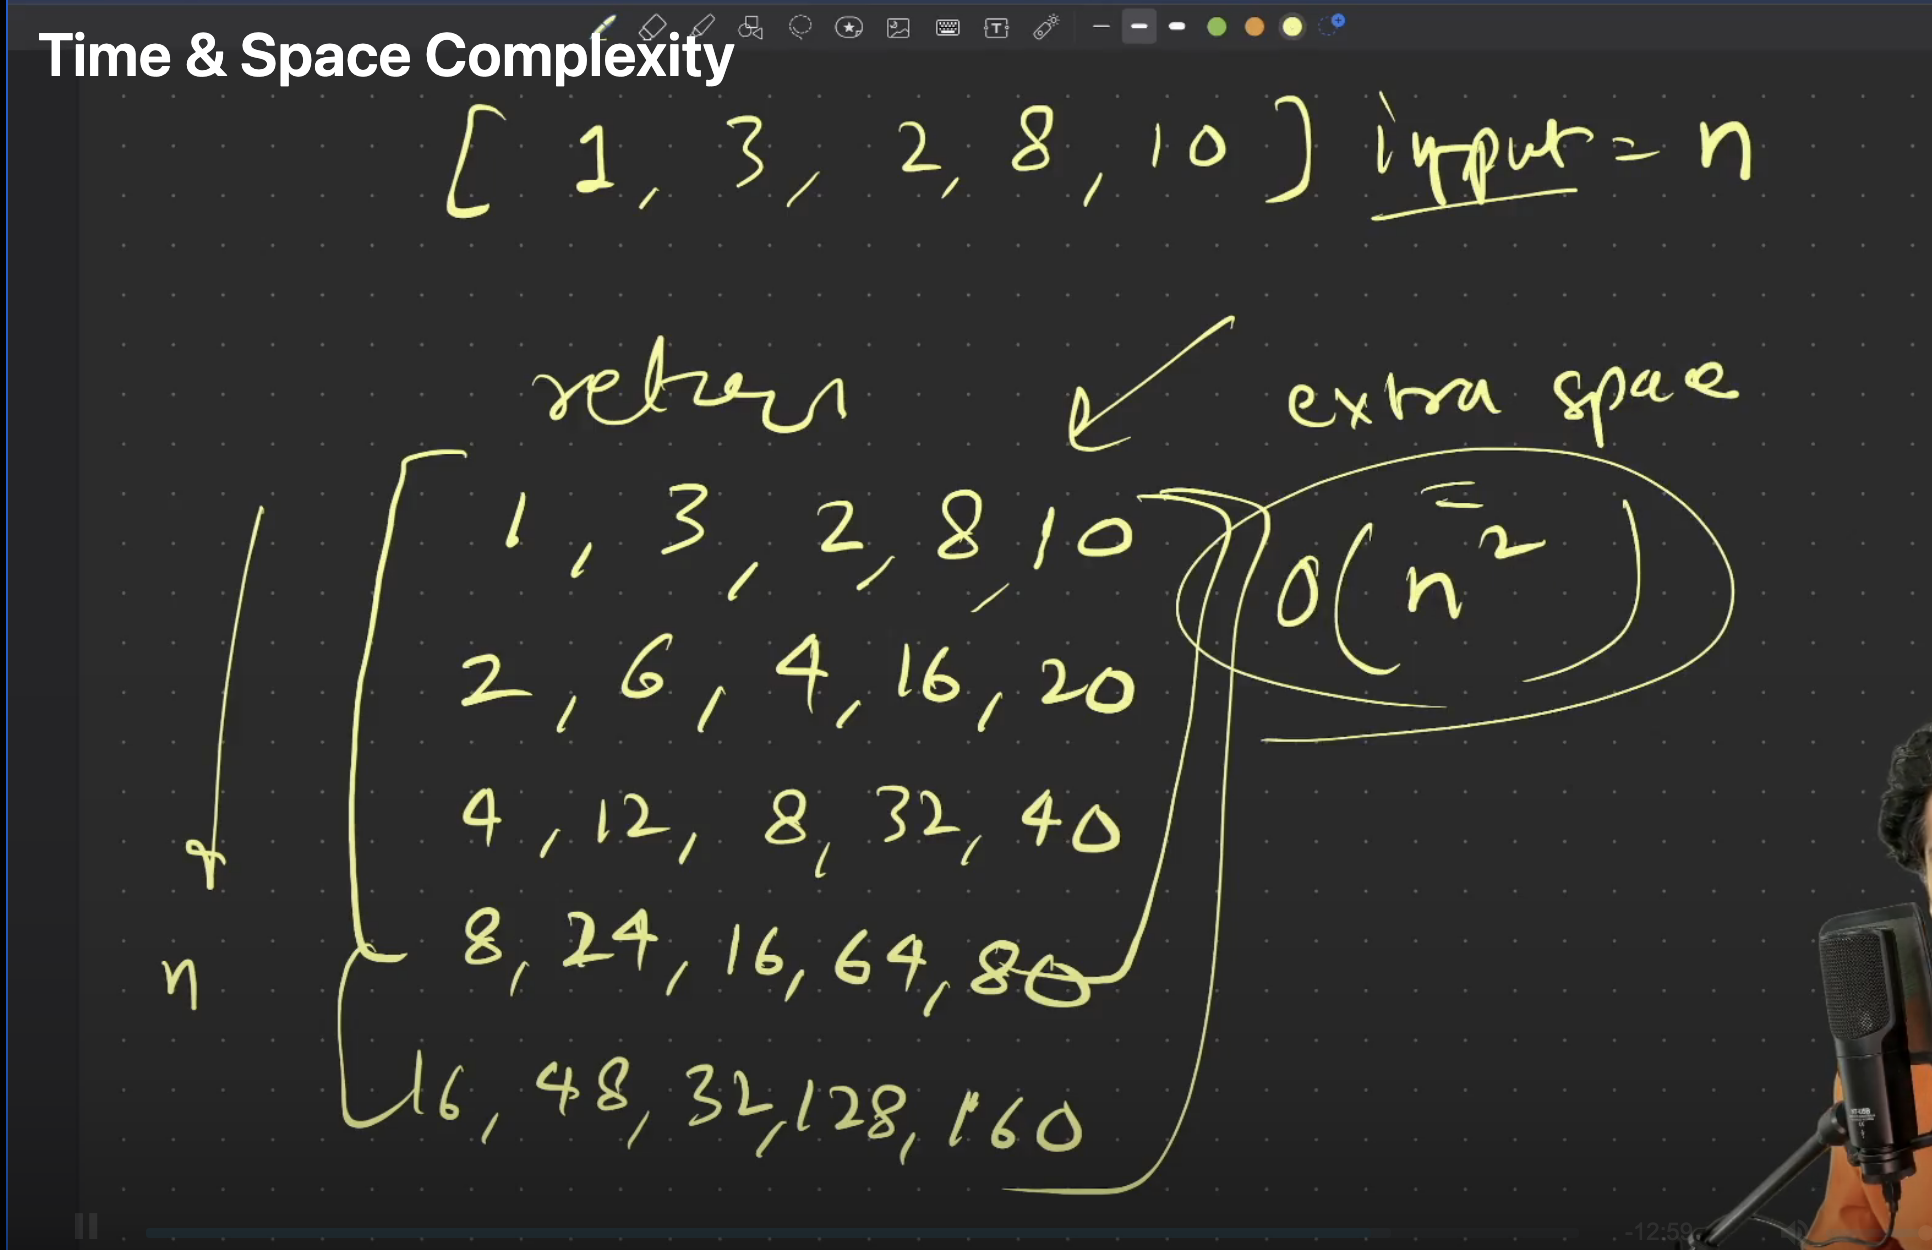 Time & Space Complexity
[ 1, 3, 2, 8, 10 ] input = n
return
extra space
1, 3, 2, 8, 10
O(n²)
2, 6, 4, 16, 20
4, 12, 8, 32, 40
8, 24, 16, 64, 80
n
16, 48, 32, 128, 160
-12:59